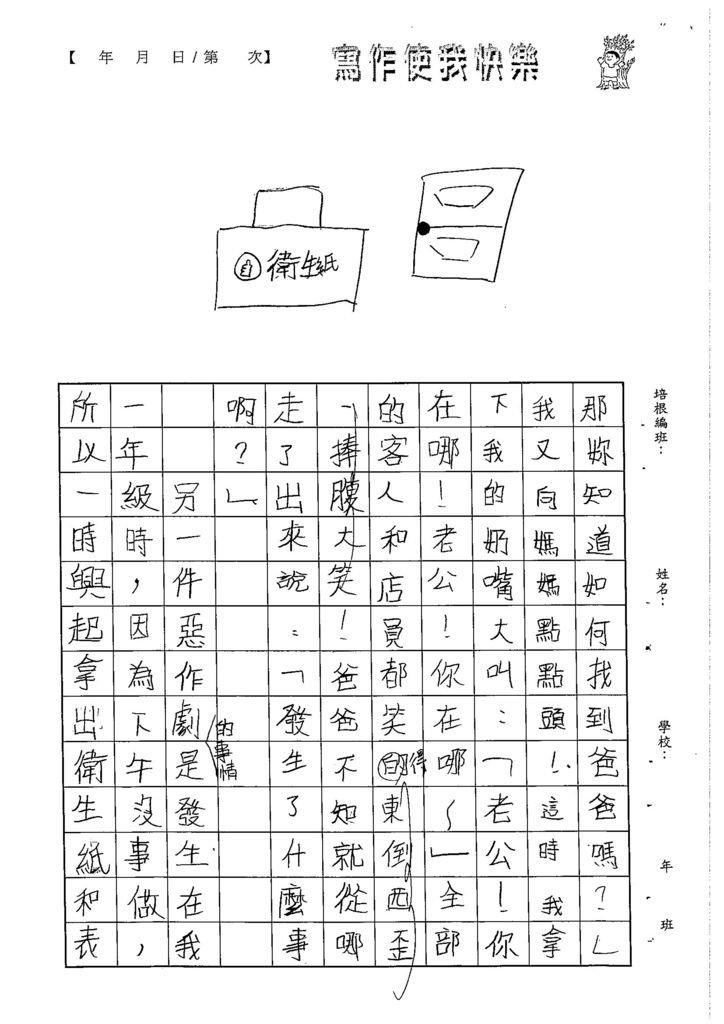 【 年 月 日/第 次】
寫作使我快樂
衛生紙
培根編班：
姓名：
學校：
年
班
那妳知道如何找到爸爸嗎？」
我又向媽媽點點頭！這時我拿
下我的奶嘴大叫：「老公！你
在哪！老公！你在哪～」全部
的客人和店員都笑的東倒西歪
得
、捧腹大笑！爸爸不知就從哪
走了出來說：「發生了什麼事
啊？」
另一件惡作劇是發生在我
的事情
一年級時時，因為下午沒事做，
所以一時興起拿出衛生紙和表